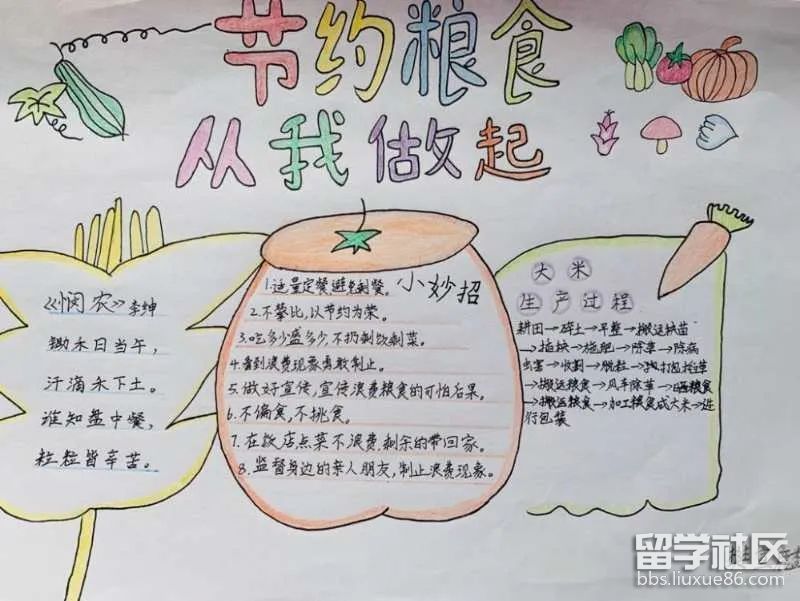 节约粮食
从我做起
《悯农》李坤
锄禾日当午，
汗滴禾下土。
谁知盘中餐，
粒粒皆辛苦。
小妙招
1.适量定餐,避免剩餐。
2.不攀比,以节约为荣。
3.吃多少盛多少,不扔剩饭剩菜。
4.看到浪费现象勇敢制止。
5.做好宣传,宣传浪费粮食的可怕后果。
6.不偏食,不挑食。
7.在饭店点菜不浪费,剩余的带回家。
8.监督身边的亲人朋友,制止浪费现象。
大米
生产过程
耕田→碎土→平整→搬运秧苗
→插秧→施肥→除草→除病
虫害→收割→脱粒→打包托运草
→搬运粮食→风车除草→晒粮食
→搬运粮食→加工粮食成大米→进
行包装
留学社区
bbs.liuxue86.com